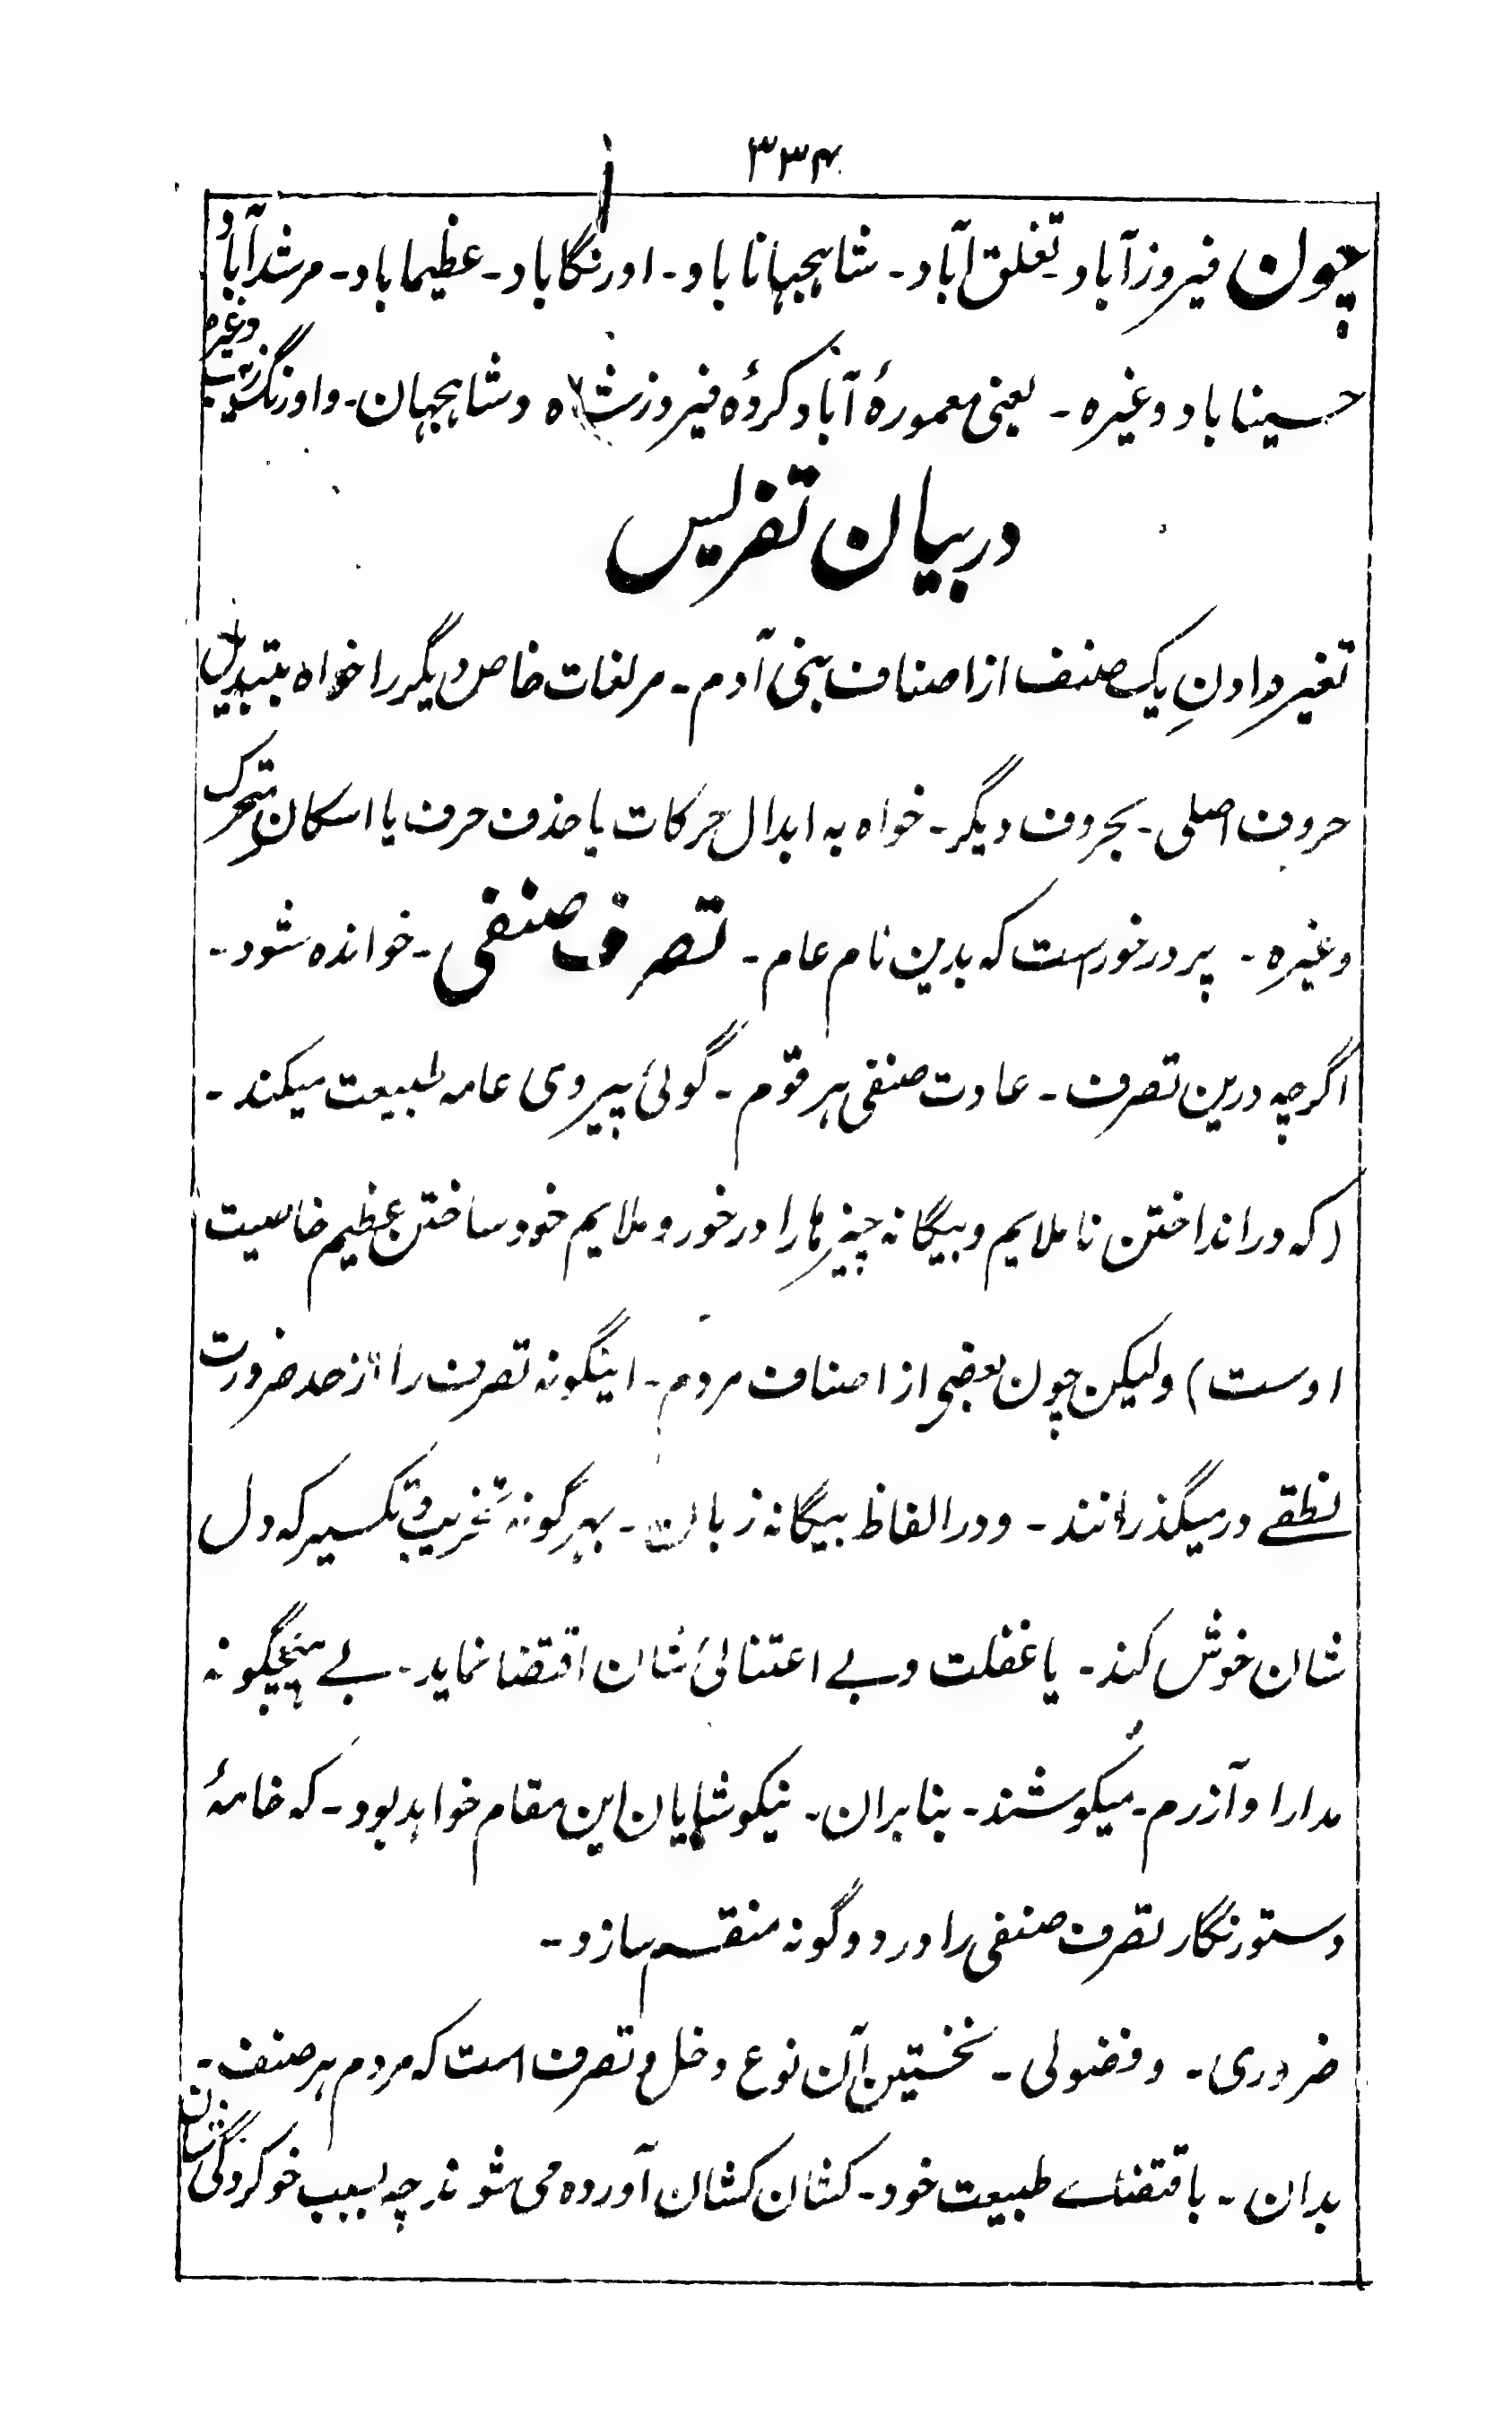 ۳۳۴
چون فیروزآباد۔ تغلق آباد۔ شاہجہاناباد۔ اورنگاباد۔ عظیماباد۔ مرشدآباد
حسیناباد وغیرہ۔ یعنی معمورۂ آباد کردۂ فیروزشاہ و شاہجہان۔ و اورنگزیب وغیرہ
در بیان تفریس
تغیر دادنِ یک صنف از اصناف بنی آدم۔ مر لغات خاص دیگر را خواہ بتبدیل
حروف اصلی۔ بحروف دیگر۔ خواہ بہ ابدال حرکات یا حذف حرف یا اسکان متحرک
وغیرہ۔ پر درخورست کہ بدین نام عام۔ تصرف صنفی۔ خواندہ شود۔
اگرچہ درین تصرف۔ عادت صنفی ہر قوم۔ گوئی پیروی عامہ طبیعت میکند۔
(کہ در انداختن ناملایم و بیگانہ چیزہا را درخور و ملایم خود ساختن عظیم خاصیت
اوست) ولیکن چون بعضی از اصناف مردم۔ اینگونہ تصرف را از حد ضرورت
نطقے درمیگذرانند۔ و در الفاظ بیگانہ زبانت۔ بہر گونہ تخریب و تکسیر کہ دل
شان خوش کند۔ یا غفلت و بے اعتنائی شان اقتضا نماید۔ بے ہیچگونہ
مدارا و آزرم۔ میکوشند۔ بنابران۔ نیکو شایان این مقام خواہد بود۔ کہ خامۂ
دستور نگار تصرف صنفی را در دو گونہ منقسم سازد۔
ضروری۔ و فضولی۔ نخستین آن نوع دخل و تصرف است کہ مردم ہر صنف۔
بدان۔ باقتضاے طبیعت خود۔ کشان کشان آوردہ می شوند چہ بسبب خوکردگی شان